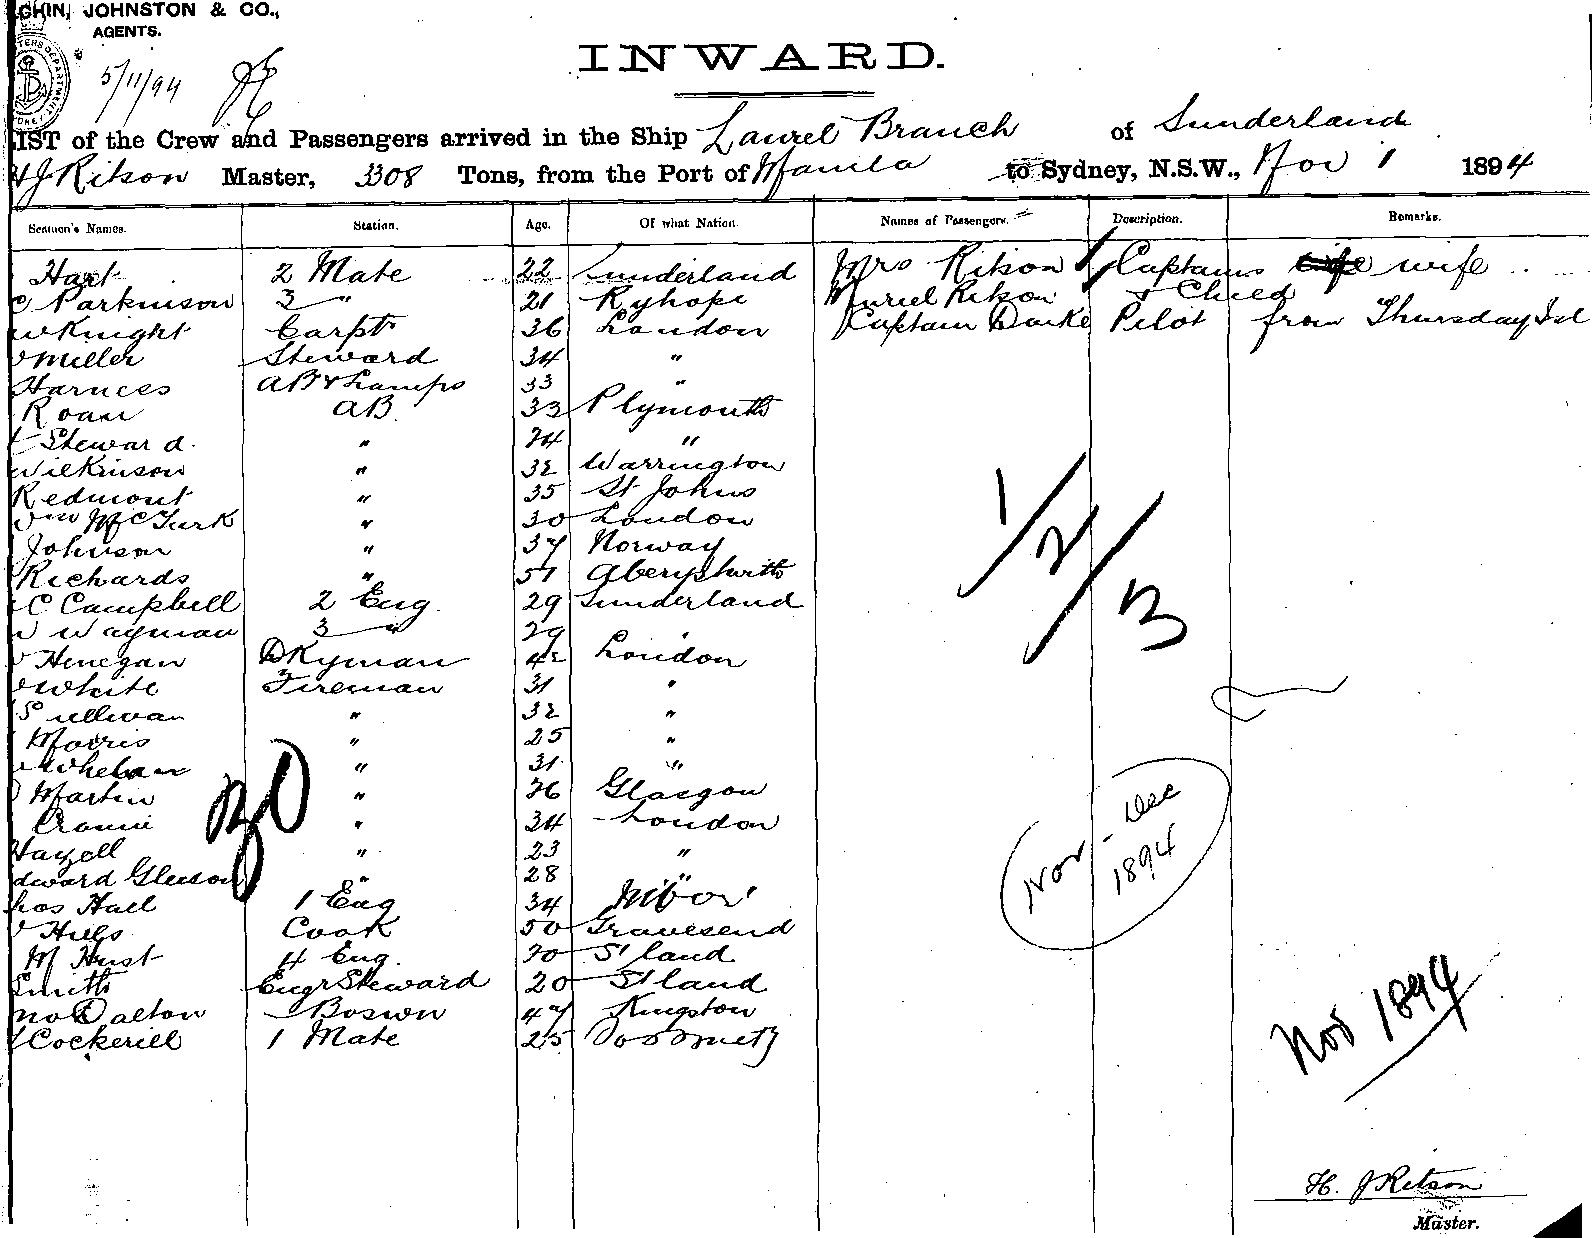 JOHNSTON & CO.,
AGENTS.
5/11/94
INWARD.
IST of the Crew and Passengers arrived in the Ship Laurel Branch of Sunderland
HJ Ritson Master, 3308 Tons, from the Port of Manila to Sydney, N.S.W., Nov 1 1894
Seamen's Names. Station. Age. Of what Nation. Names of Passengers. Description. Remarks.
Hart 2 Mate 22 Sunderland Mrs Ritson Captains wife
Parkinson 3 " 21 Ryhope Muriel Ritson & Child
Knight Carptr 36 London Captain Darke Pilot from Thursday Isl
Miller Steward 34 "
Harnees AB & Lamps 33 "
Roan AB. 33 Plymouth
Steward. " 24 "
Wilkinson " 32 Warrington
Redmont " 35 St Johns
Wm McTurk " 30 London
Johnson " 37 Norway
Richards " 51 Aberystwith
C Campbell 2 Eng. 29 Sunderland
W Wayman 3 " 29 "
Henegan DKyman 42 London
White Fireman 31 "
Sullivan " 32 "
Morris " 25 "
Whelan " 31 "
Martin " 26 Glasgow
Cronie " 34 London
Hazell " 23 "
dward Gleeson " 28 "
hos Hall 1 Eng 34
Hills Cook 50 Gravesend
M Hust 4 Eng. 20 S'land
Smith Engr Steward 20 S'land
no Dalton Boswn 47 Kingston
Cockerill 1 Mate 25
1/2/3
Nov - Dec
1894
Nov 1894
H. J Ritson
Master.